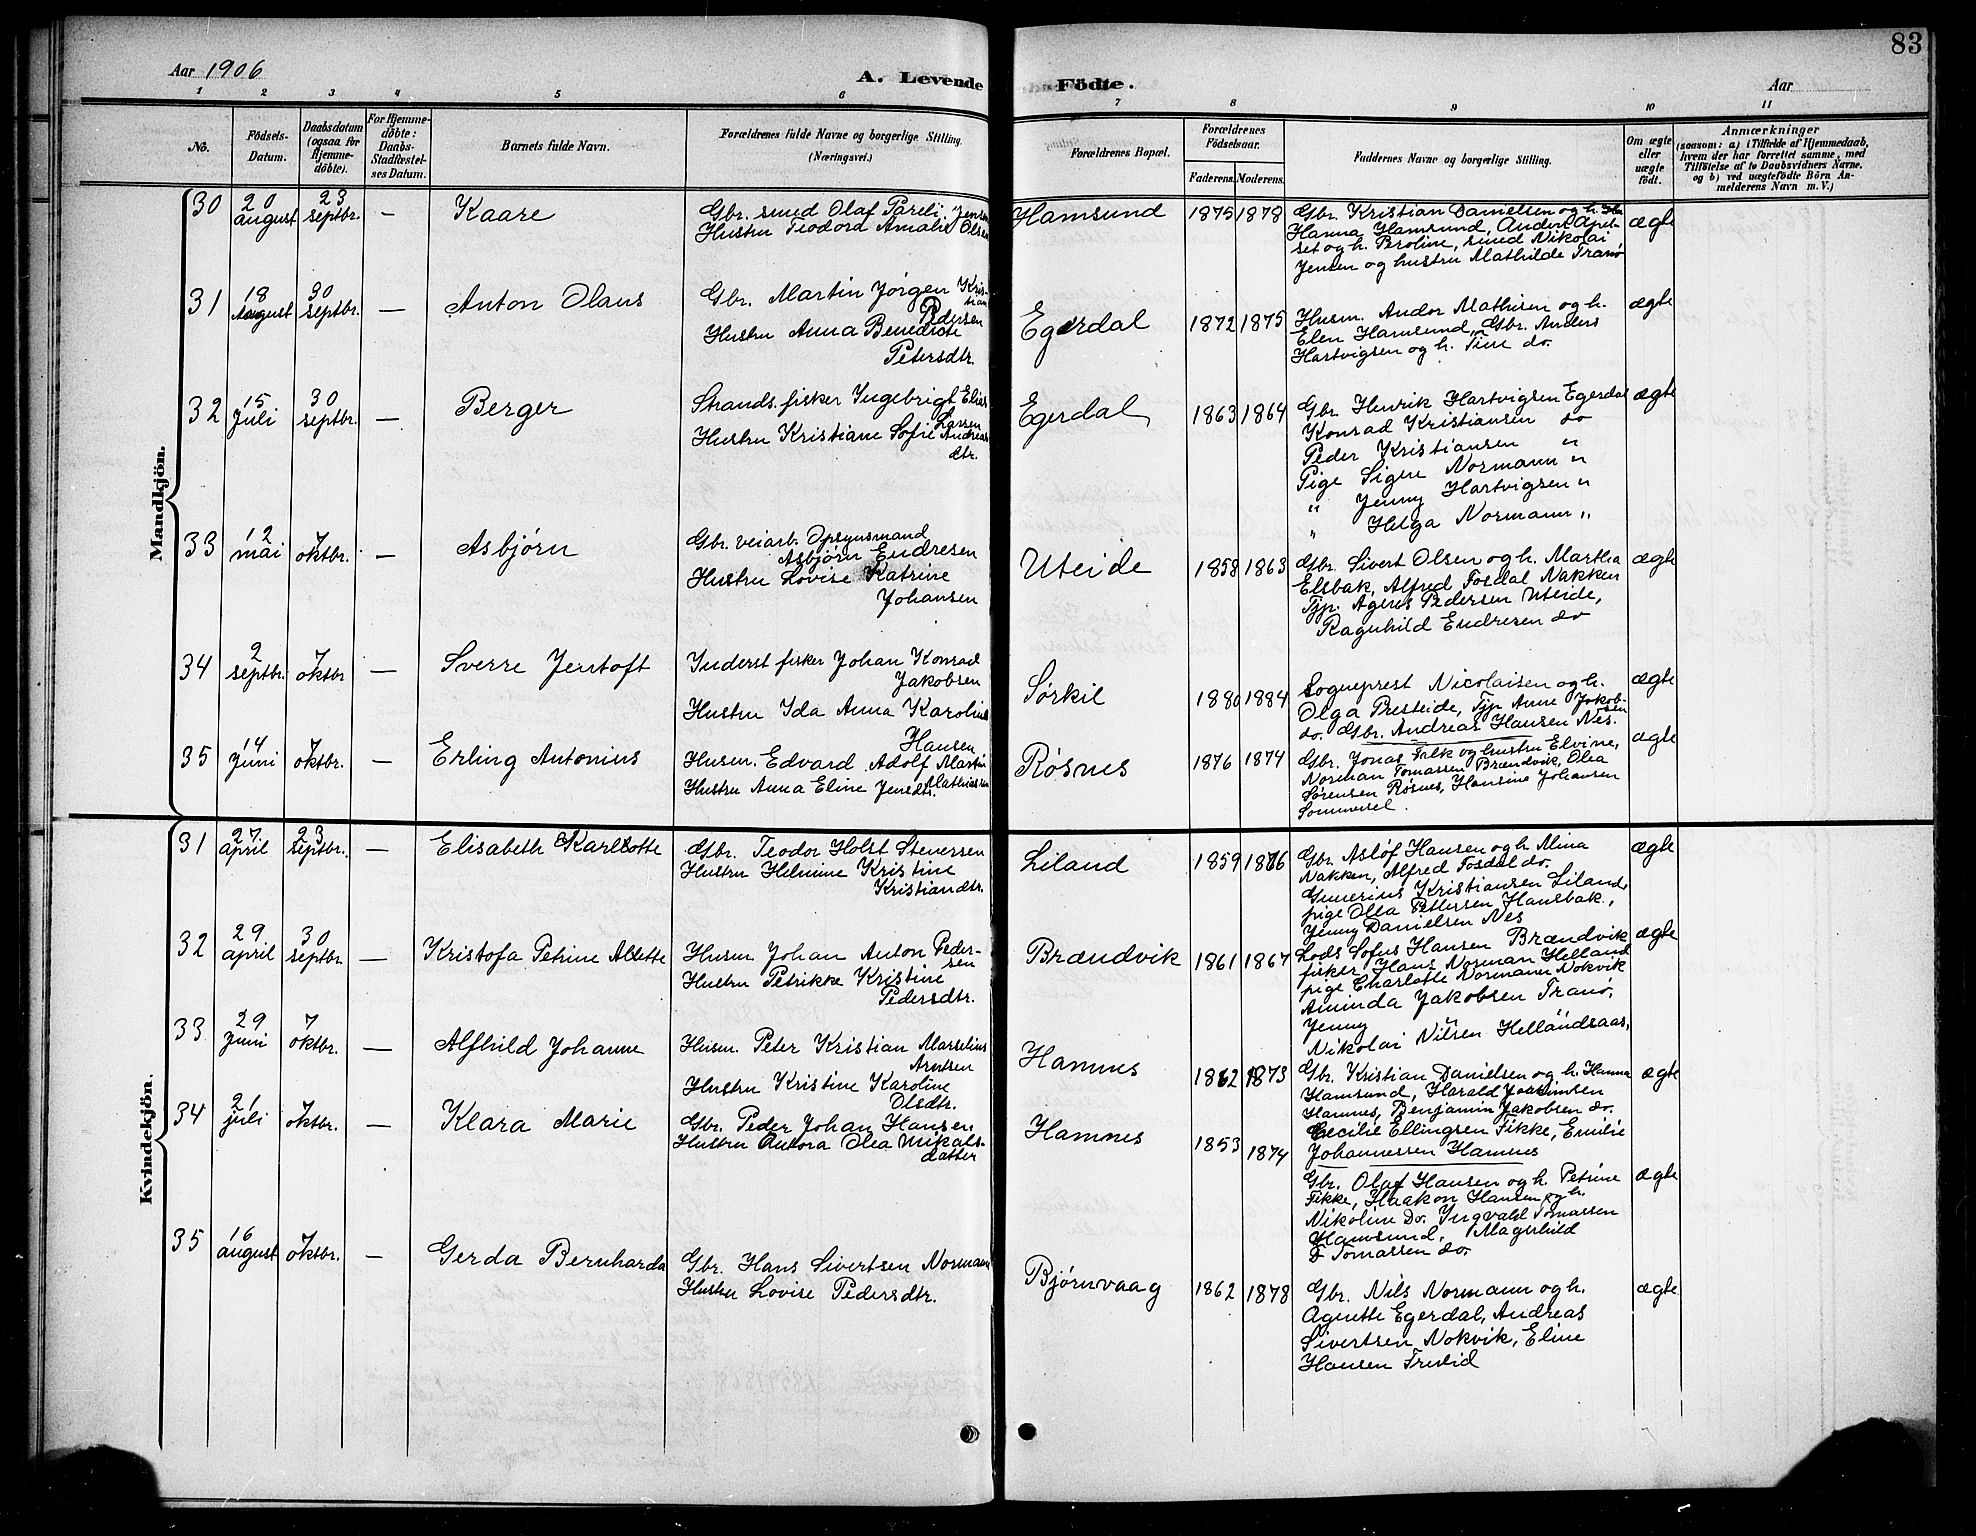 83
Aar 1906
A. Levende Födte.
Aar
1 2 3 4 5 6 7 8 9 10 11
No.
Födsels-Datum.
Daabsdatum (ogsaa for Hjemmedöbte).
For Hjemmedöbte: Daabs-Stadfæstelses Datum.
Barnets fulde Navn.
Forældrenes fulde Navne og borgerlige Stilling. (Næringsvei.)
Forældrenes Bopæl.
Forældrenes Födselsaar.
Faderens. Moderens.
Faddernes Navne og borgerlige Stilling.
Om ægte eller uægte födt.
Anmærkninger
(saasom: a) i Tilfælde af Hjemmedaab, hvem der har forrettet samme, med Tilföielse af to Daabsvidners Navne. og b) ved uægtefödte Börn Anmelderens Navn m. V.)
Mandkjön.
30 20 august 23 septbr. — Kaare
Gbr. smed Olaf Pareli Jensen
Hustru Teodora Amalie Olsen
Hamsund 1875 1878
Gbr. Kristian Danielsen og h.
Hanna Hamsund, Anders
set og h. Peroline, smed Nikolai
Jensen og hustru Mathilde Tranø
ægte
31 18 august 30 septbr. — Anton Olaus
Gbr. Martin Jørgen Kristian
Pedersen
Hustru Anna Benedikte
Petersdtr.
Egerdal 1872 1875
Husm. Andor Mathisen og h.
Elen Hamsund, Gbr. Anders
Hartvigsen og h. Tine do.
ægte
32 15 Juli 30 septbr. — Berger
Strands. fisker Ingebrigt Elias
Larsen
Hustru Kristiane Sofie Andreas
dtr.
Egerdal 1863 1864
Gbr. Henrik Hartvigsen Egerdal
Konrad Kristiansen do
Peder Kristiansen "
Pige Signe Normann "
" Jenny Hartvigsen "
" Helga Normann "
ægte
33 12 mai 7 oktbr. — Asbjørn
Gbr. veiarb. Opsynsmand
Asbjørn Endresen
Hustru Lovise Katrine
Johansen
Uteide 1858 1863
Gbr. Sivert Olsen og h. Martha
Elsbak, Alfred Fosdal Nakken
Tjp. Agnes Pedersen Uteide,
Ragnhild Endresen do
ægte
34 2 septbr. 7 oktbr — Sverre Jentoft
Inderst fisker Johan Konrad
Jakobsen
Hustru Ida Anna Karoline
Hansen
Sørkil 1880 1884
Sogneprest Nicolaisen og h.
Olga Presteide, Tjp Anne Jakobsen
do. Gbr. Andreas Hansen Nes.
ægte
35 14 Juni 7 oktbr. — Erling Antonius
Husm. Edvard Adolf Martin
Mathiassen
Hustru Anna Eline Jensdtr.
Røsnes 1876 1874
Gbr. Jonas Falk og hustru Elvine,
Norman Tomassen Brændvik, Olea
Sørensen Røsnes, Hansine Johansen
Sommersel.
ægte
Kvindekjön.
31 27 april 23 septbr. — Elisabeth Karlotte
Gbr. Teodor Holst Stenersen
Hustru Helmine Kristine
Kristiandtr.
Liland 1859 1866
Gbr Asløf Hansen og h Mina
Nakken, Alfred Fosdal do.
Gunerius Kristiansen Liland,
pige Olea Pettersen Hansbak,
Jenny Danielsen Nes
ægte
32 29 april 30 septbr — Kristofa Petrine Alette
Husm Johan Anton Pedersen
Hustru Petrikke Kristine
Pedersdtr.
Brændvik 1861 1867
Lods Sofus Hansen Brændvik
fisker Hans Norman Helland
pige Charlotte Normann Nokvik
Aminda Jakobsen Tranø,
Jenny "
Nikolai Nilsen Hellandsaas,
ægte
33 29 Juni 7 oktbr. — Alfhild Johanne
Husm. Peter Kristian Marselius
Arntsen
Hustru Kristine Karoline
Olsdtr.
Hamnes 1862 1873
Gbr. Kristian Danielsen og h. Hanna
Hamsund, Harald Joakimsen
Hamnes, Benjamin Jakobsen do.
Cecilie Ellingsen Fikke, Emilie
Johannessen Hamnes
ægte
34 21 juli 7 oktbr. — Klara Marie
Gbr. Peder Johan Hansen
Hustru Aurora Olea Mikals-
datter
Hamnes 1853 1874
Gbr. Olaf Hansen og h. Petrine
Fikke, Haakon Hansen og h.
Nikoline Do. Ingvald Tomassen
Hamsund, Magnhild
Tomassen do.
ægte
35 16 august 7 oktbr. — Gerda Bernharda
Gbr. Hans Sivertsen Normann
Hustru Lovise Pedersdtr.
Bjørnvaag 1862 1878
Gbr. Nils Normann og h.
Agnette Egerdal, Andreas
Sivertsen Nokvik, Eline
Hansen
ægte